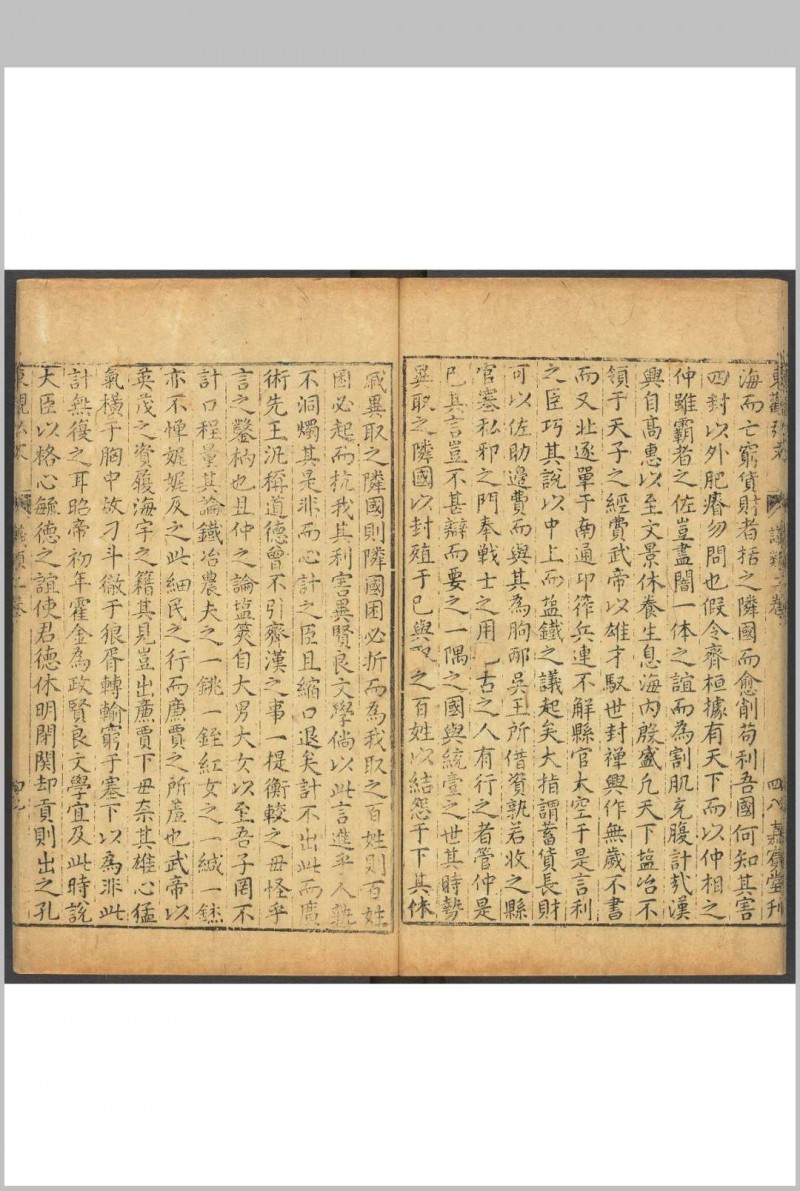 四八 嘉賓堂刊
海而亡窮貨財者括之隣國而愈削苟利吾國何知其害
四封以外肥瘠勿問也假令齊桓據有天下而以仲相之
仲雖霸者之佐豈盡闇一体之誼而為割肌充腹計哉漢
興自高惠以至文景休養生息海內殷盛凢天下塩冶不
領于天子之經費武帝以雄才馭世封禅興作無歲不書
而又北逐單于南通卭筰兵連不解縣官大空于是言利
之臣巧其說以中上而塩鐵之議起矣大指謂蓄貨長財
可以佐助邊費而與其為朐邴吳王所借資孰若收之縣
官塞私邪之門奉戦士之用古之人有行之者管仲是
已其言豈不甚辯而要之一隅之國與統壹之世其時勢
異取之隣國以封殖于已與之百姓以結怨于下其休
戚異取之隣國則隣國困必折而為我取之百姓則百姓
困必起而抗我其利害異賢良文學倘以此言進乎人孰
不洞燭其是非而心計之臣且縮口退矣計不出此而廣
術先王汎稱道德曾不引齊漢之事一提衡較之毋怪乎
言之鑿枘也且仲之論塩筴自大男大女以至吾子罔不
計口程量其論鐵冶農夫之一銚一銍紅女之一緘一鉥
亦不憚娓娓及之此細民之行而廉賈之所羞也武帝以
英茂之資履海宇之籍其見豈出廉賈下毋奈其雄心猛
氣横于胸中故刁斗徹于狼胥轉輸窮于塞下以為非此
計無復之耳昭帝初年霍金為政賢良文學宜及此時說
大臣以格心毓德之誼使君德休明閉関却貢則出之孔
四九